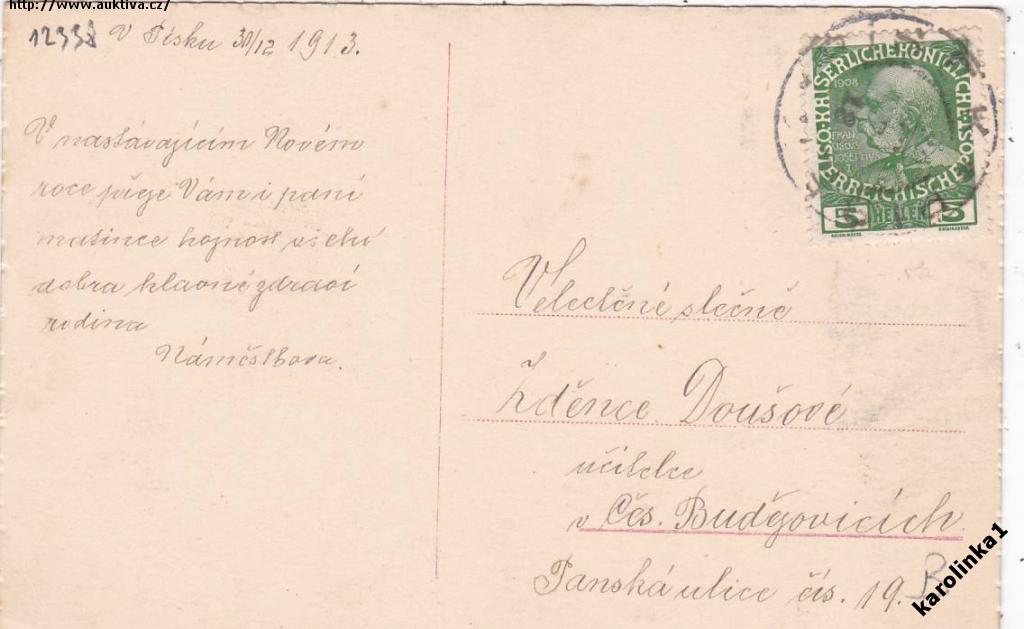 http://www.auktiva.cz/
12338 V Písku 30/12 1913.
V nastávajícím Novém
roce přeje Vám i paní
matince hojnost všeho
dobra hlavně zdraví
rodina
Náměstkova.
KAISERLICHE KÖNIGLICHE
ÖSTERREICHISCHE
1908
FRAN
CISCVS
JOSEPHVS
5 HELLER 5
Veleděné slečně
Zděnce Doušové
učitelce
v Čes. Budějovicích
Panská ulice čís. 19.
B
karolinka1